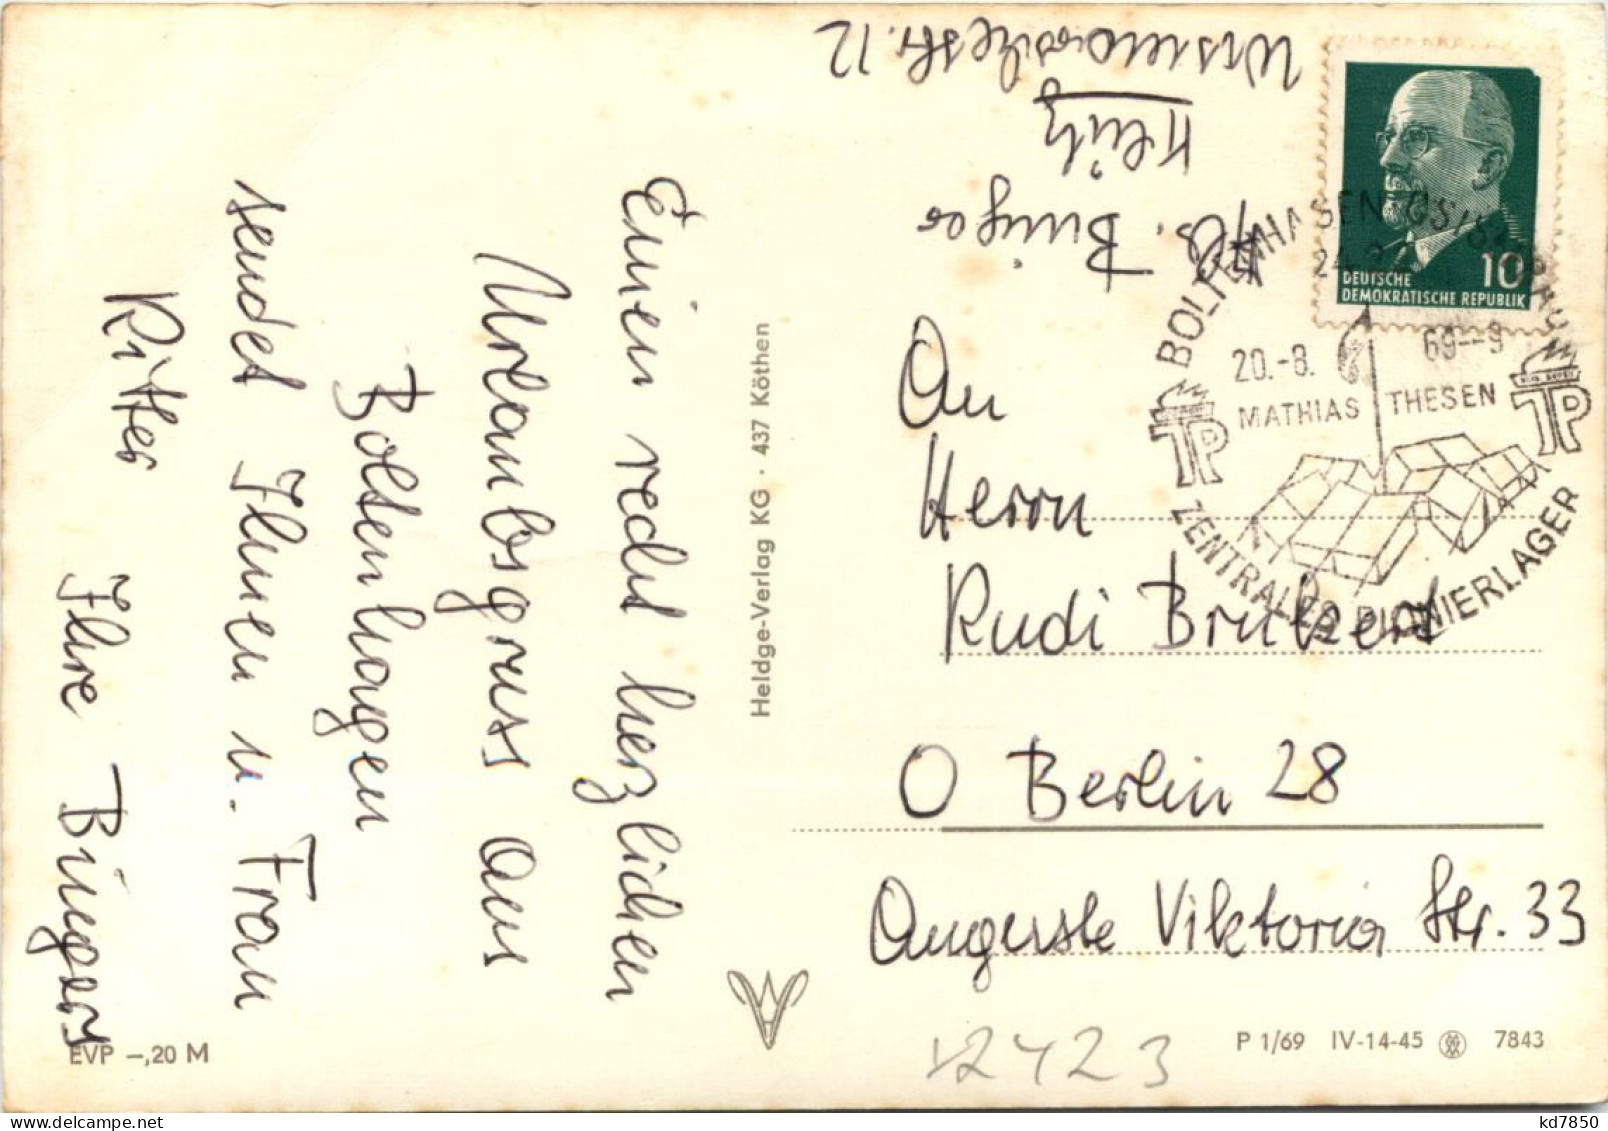 Einen recht herzlichen
Urlaubsgruss aus
Boltenhagen
sendet Ihnen u. Frau
Ritter
Ihre Büngers
Heldge-Verlag KG · 437 Köthen
EVP –,20 M
Abs. Bünger
Klütz
str. 12
DEUTSCHE
DEMOKRATISCHE REPUBLIK
10
BOLTENHAGEN
20.-8. 69--9
MATHIAS THESEN
TP
TP
ZENTRALES PIONIERLAGER
An
Herrn
Rudi
O Berlin 28
Auguste Viktoria Str. 33
12423
P 1/69 IV-14-45 7843
kd7850